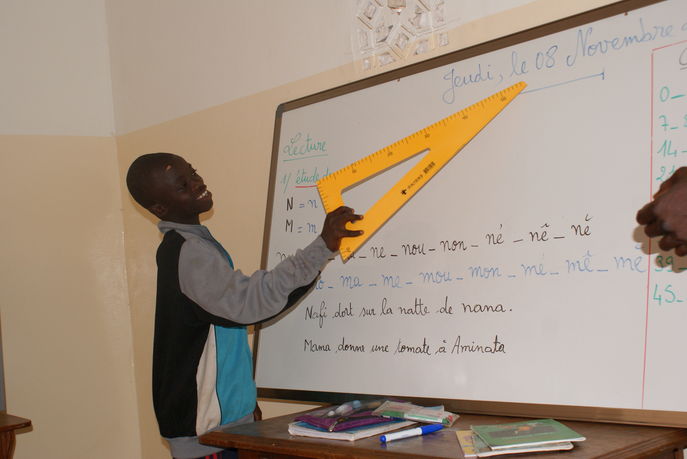 Jeudi, le 08 Novembre
Lecture
1/ étude d
N = n
M = m
ne - nou - non - né - nê - nè
ma - me - mou - mon - mé - mê - mè
Nafi dort sur la natte de nana.
Mama donne une tomate à Aminata
0-
7-
14-
21
39-
45-